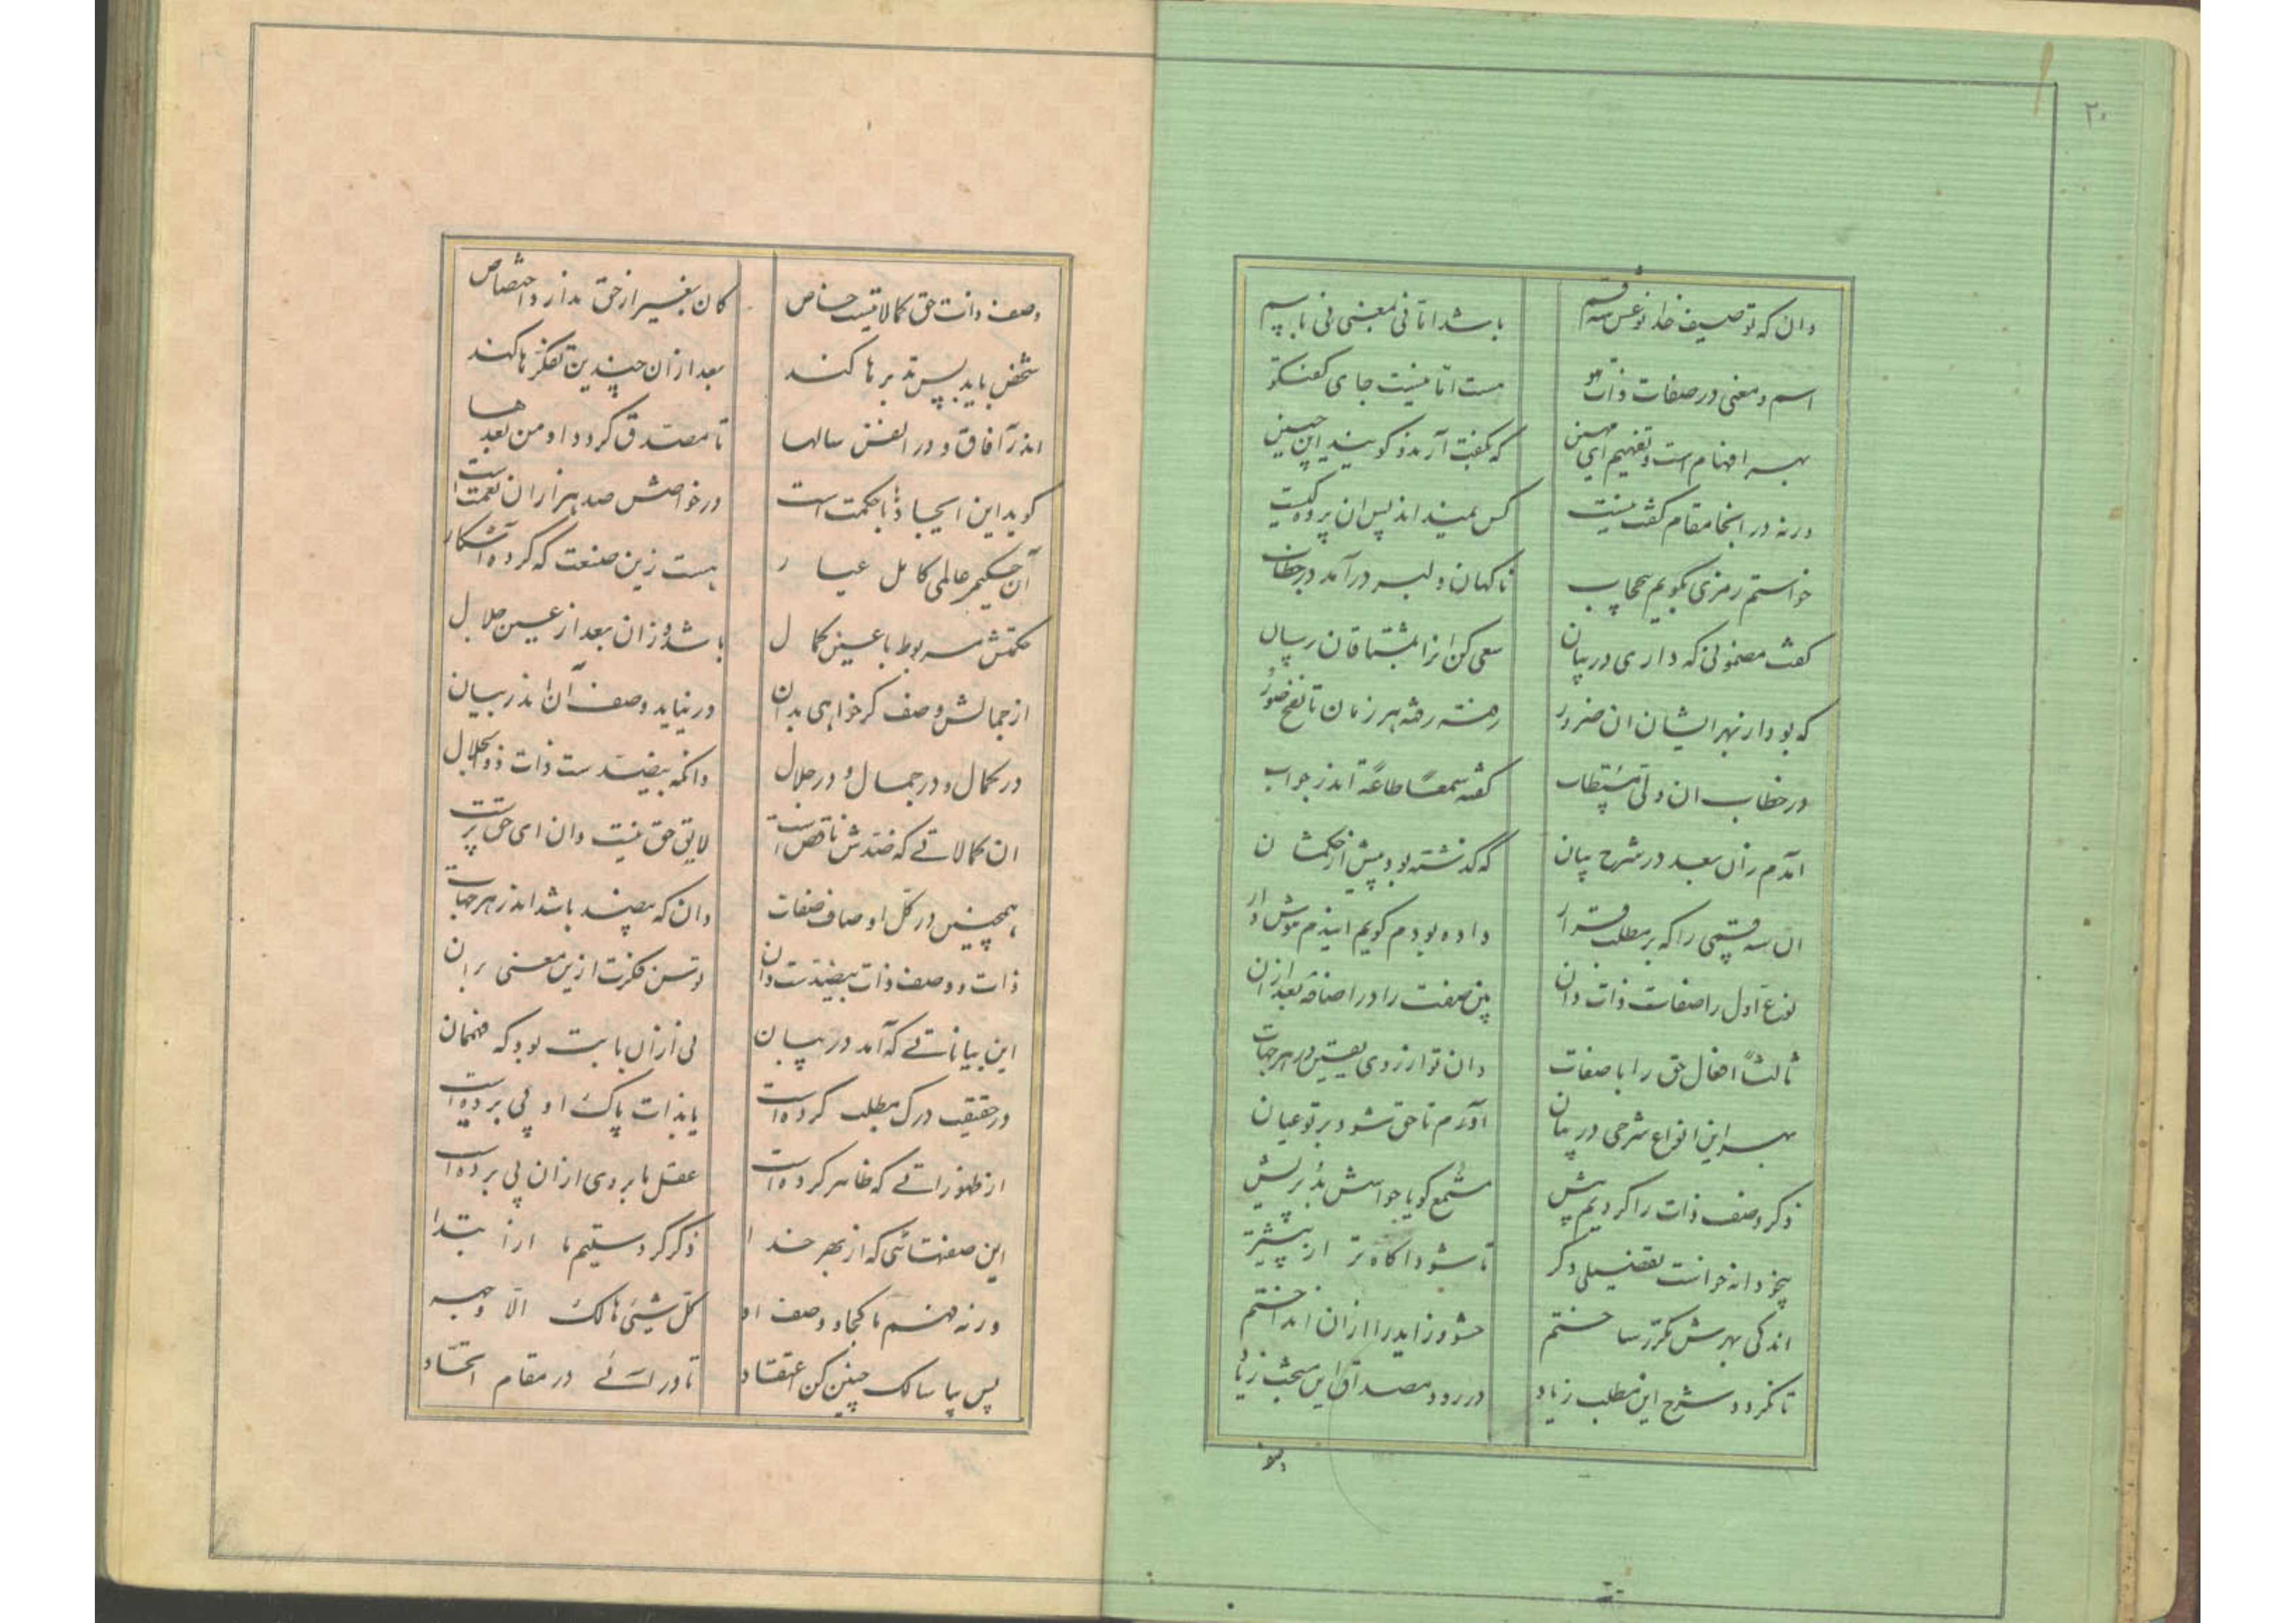 ۲۰
دان که توصیف خدا نوعش سه قسم
باشد اما فی معنی فی باسم
اسم و معنی در صفات ذات هو
هست اما نیست جای گفتگو
بهر افهام است و تفهیم ای مهین
که بگفت آرند و گویند این چنین
ورنه در انجا مقام گفت نیست
کس نمیداند پس ان پرده کیست
خواستم رمزی بگویم بیحجاب
ناگهان دلبر درآمد در خطاب
گفت مضمونی که داری در بیان
سعی کن انرا بمشتاقان رسان
که بود از بهر ایشان ان ضرور
رفته رفته هر زمان تا نفخ صور
در خطاب ان ولی مستطاب
گفته سمعاً طاعةً اندر جواب
آمدم زان بعد در شرح بیان
که گذشته بود پیش از حکمشان
ان سه قسمی را که بر مطلب قرار
داده بودم گویم ایندم هوش دار
نوع اول را صفات ذات دان
پس صفت را در اضافه بعد از ان
ثالثاً افعال حق را با صفات
دان تو از روی یقین در هر جهات
بهر این انواع شرحی در بیان
آورم تا حق شود بر تو عیان
ذکر وصف ذات را کردیم پیش
مستمع گویا حواسش بد پریش
بیخودانه خواست تفضیلی دگر
تا شود اگاه تر از پیشتر
اندکی بهرش مکرر ساختم
حشو و زاید را از ان انداختم
تا نگردد شرح این مطلب زیاد
در رود مصداق این مبحث زیاد
وصف ذات حق کمالاتیست خاص
کان بغیر از حق ندارد اختصاص
شخص باید پس تدبرها کند
بعد از ان چندین تفکرها کند
اندر آفاق و در انفس سالها
تا مصدق گردد او من بعدها
گوید این ایجادها با حکمت است
در خواصش صد هزاران نعمت است
آن حکیم عالمی کامل عیار
هست زین صنعت که کرده آشکار
حکمتش مربوط با عین کمال
باشد و زان بعد از عین جلال
از جمالش وصف گر خواهی بدان
در نیاید وصف آن اندر بیان
در کمال و در جمال و در جلال
دانکه بیضدست ذات ذوالجلال
ان کمالاتی که ضدش ناقص است
لایق حق نیست دان ای حق پرست
همچنین در کل اوصاف صفات
دان که بیضد باشد اندر هر جهات
ذات و وصف ذات بیضدست دان
توسن فکرت ازین معنی بران
این بیاناتی که آمد در بیان
نی از ان بابت بود که فهممان
در حقیقت درک مطلب کرده است
یا بذات پاک او پی برده است
از ظهوراتی که ظاهر کرده است
عقل ما بروی از ان پی برده است
این صفتهائی که از بهر خدا
ذکر کردستیم ما از ابتدا
ورنه فهم ما کجا و وصف او
کل شیئی هالک الا وجهه
پس بیا سالک چنین کن اعتقاد
تا درائی در مقام اتحاد